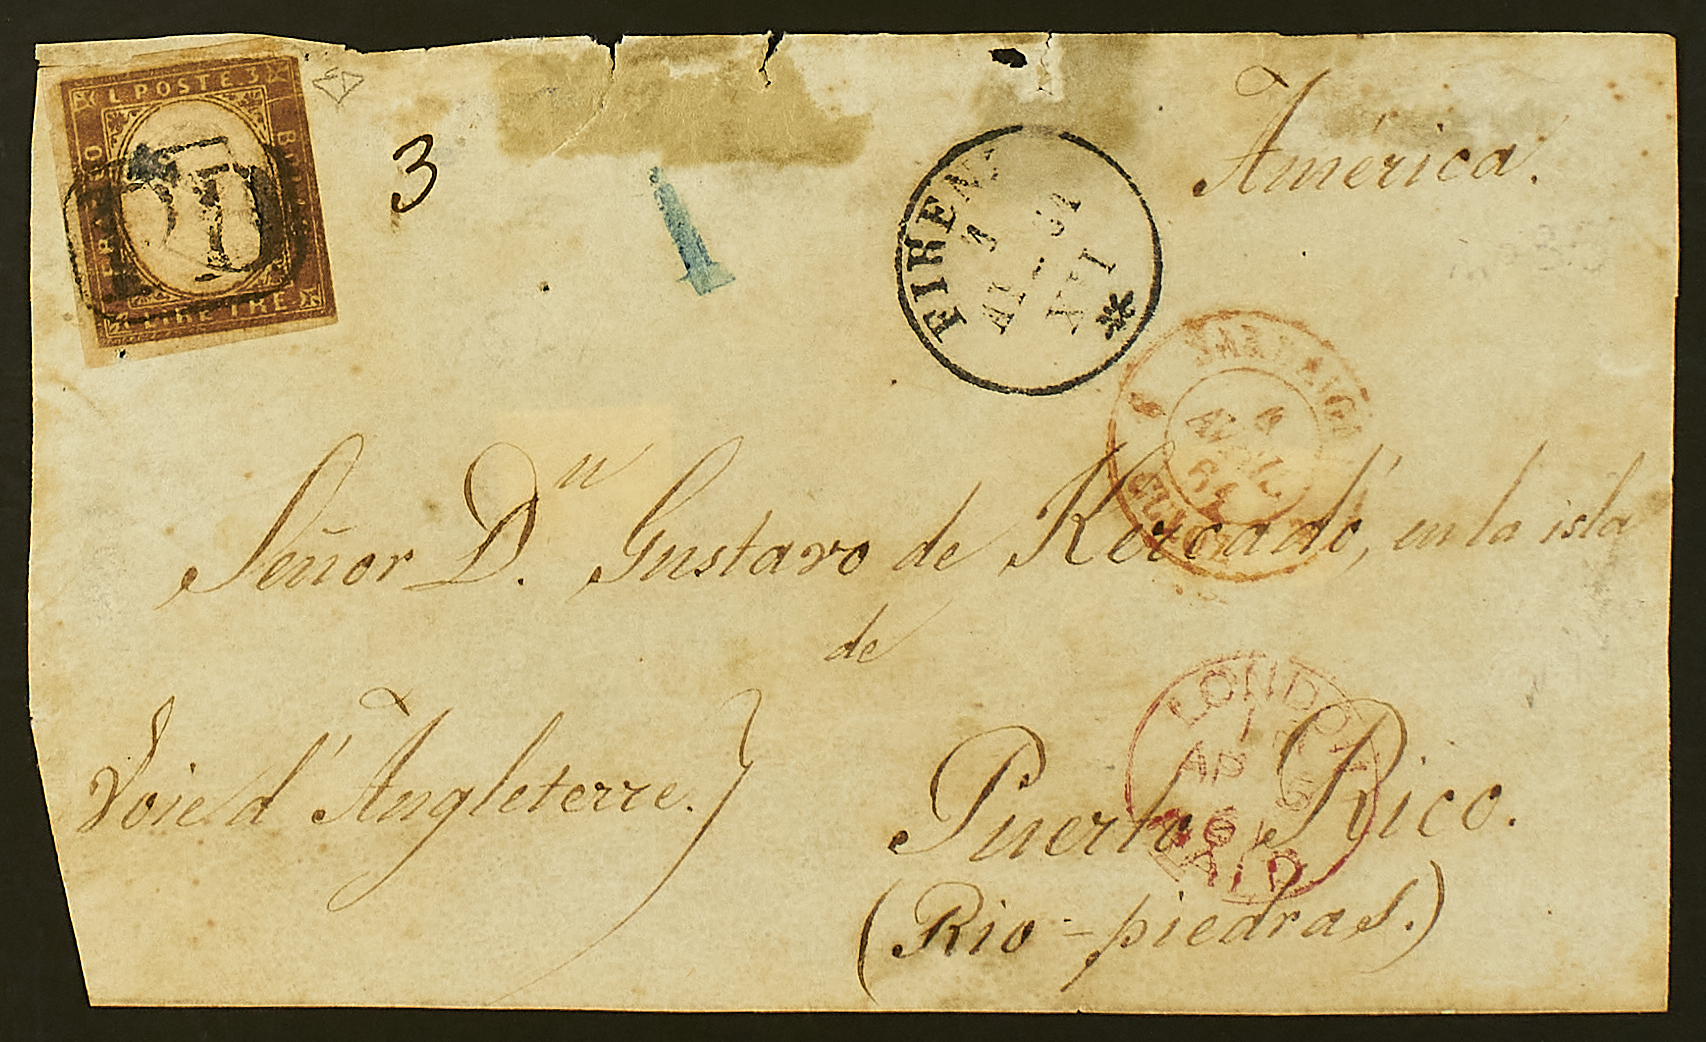 C. POSTE 3
BOLLO
LIRE TRE
FRANCO
PD
3
1
América.
FIRENZE
AP 61
XII
SARDAIGNE
AVRIL
61
Señor Dn. Gustavo de Kercadó, en la isla
de
Puerto Rico.
(Rio-piedras.)
Voie d'Angleterre.
LONDON
AP
61
PAID